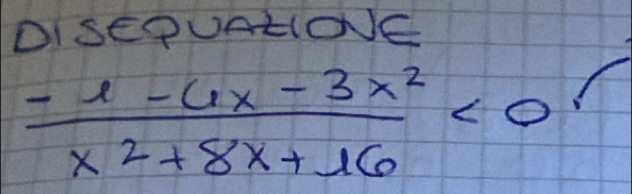 DISEQUAZIONE
-1-4x-3x²
x2+8x+16
<0